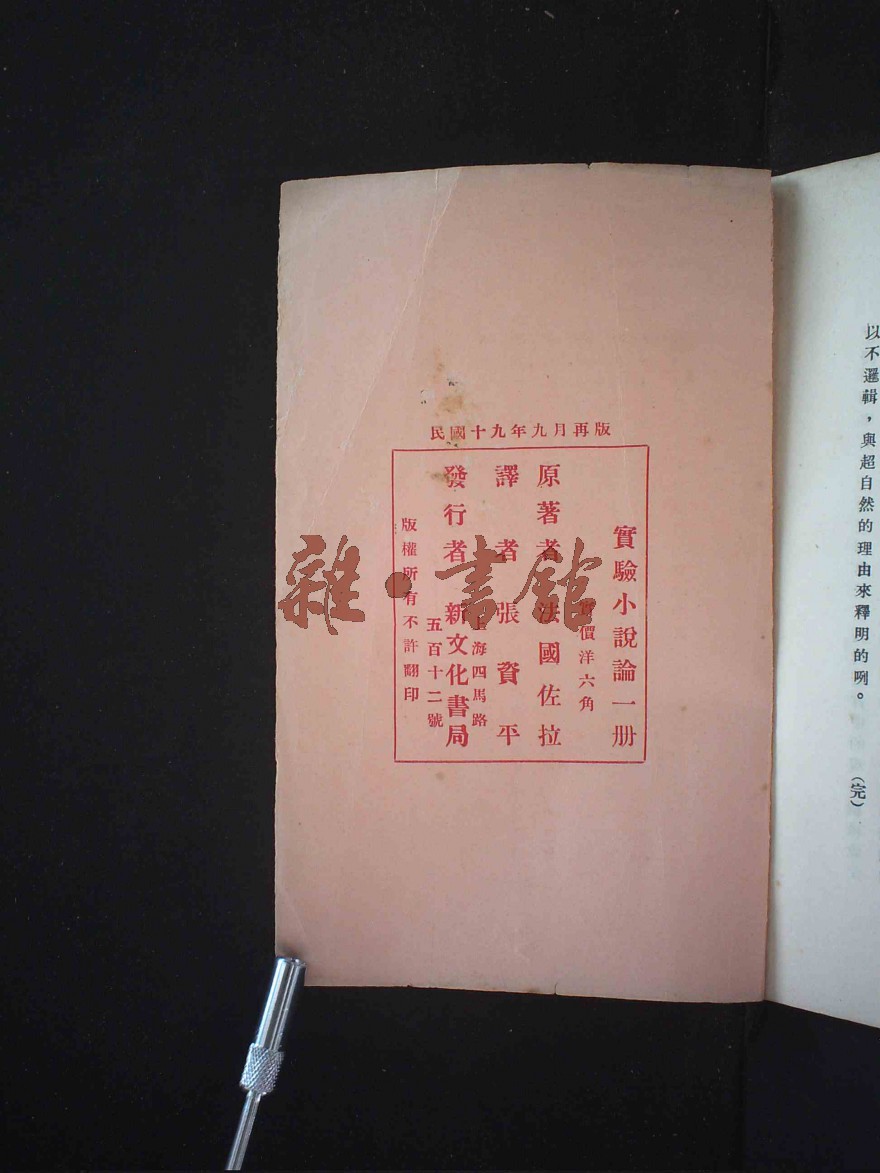 以不邏輯，與超自然的理由來釋明的咧。
（完）
民國十九年九月再版
實驗小說論一册
實價洋六角
原著者 法國佐拉
譯者 張資平
發行者 新文化書局
上海四馬路
五百十二號
版權所有不許翻印
雜·書館